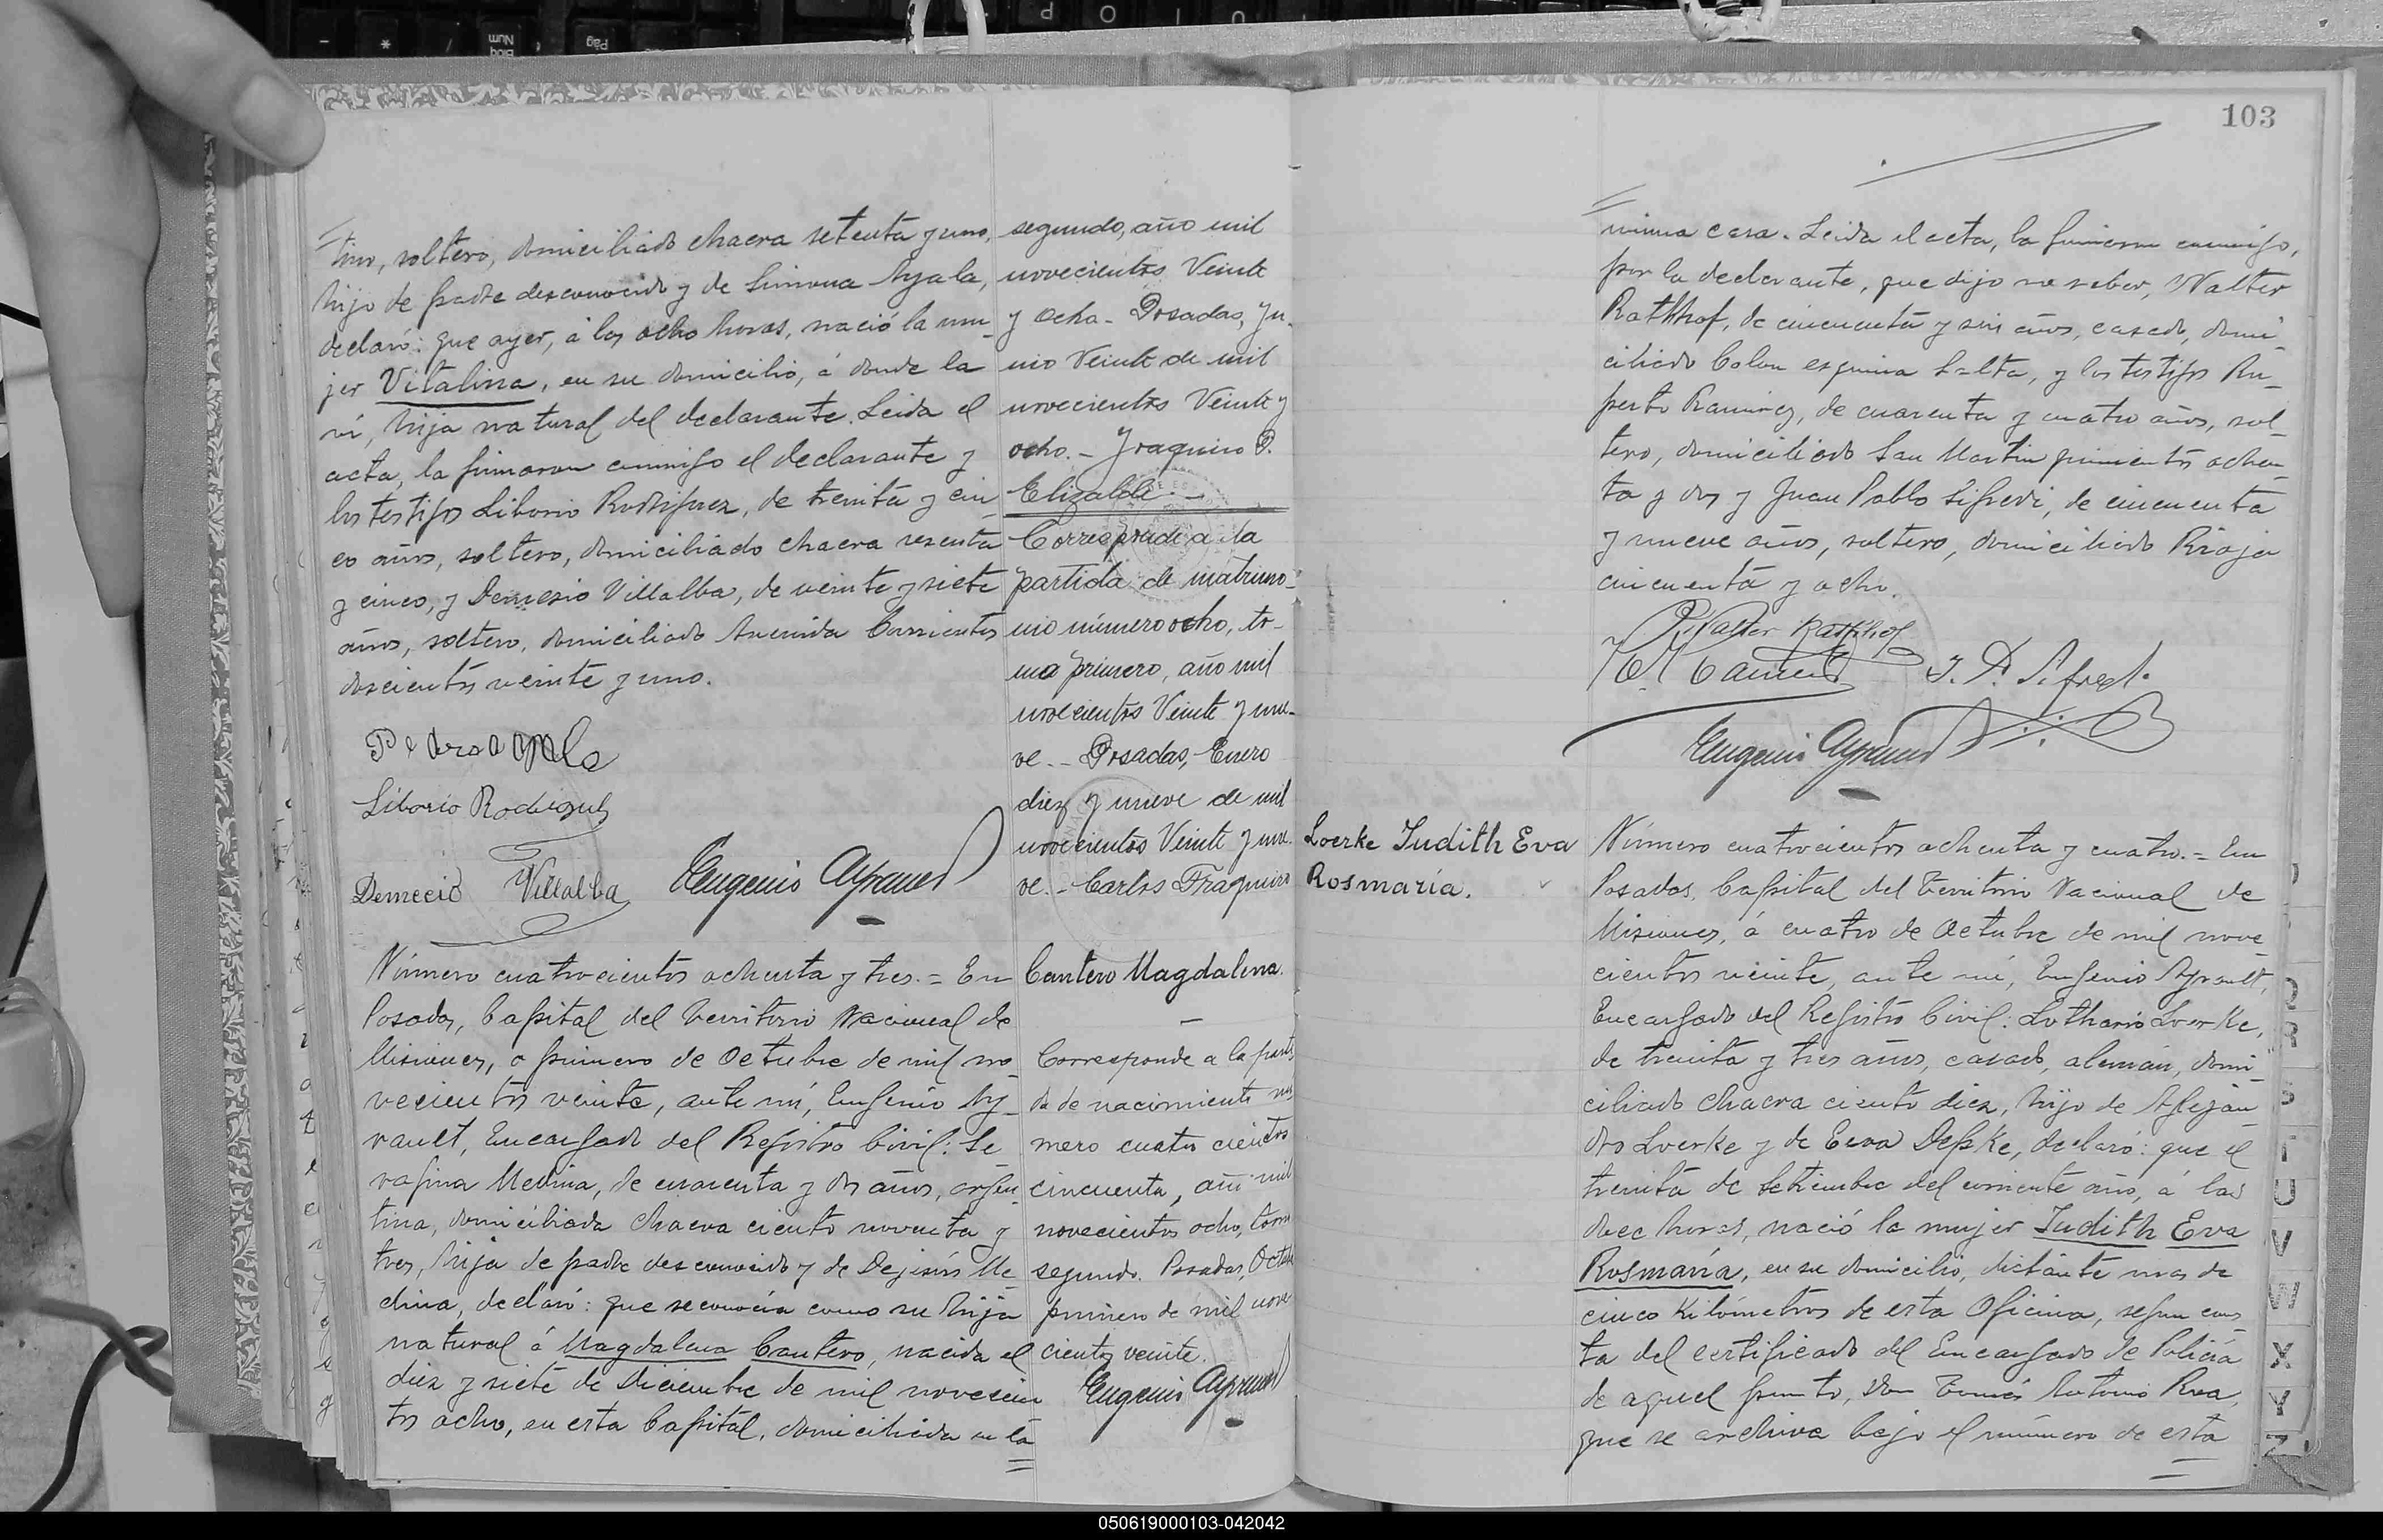 tino, soltero, domiciliado chacra setenta y uno,
hijo de padre desconocido y de Simona Ayala,
declaró: que ayer, á las ocho horas, nació la mu-
jer Vitalina, en su domicilio, á donde la
ví, hija natural del declarante. Leida el
acta, la firmaron conmigo el declarante y
los testigos Liborio Rodriguez, de treinta y cin-
co años, soltero, domiciliado chacra sesenta
y cinco, y Demesio Villalba, de veinte y siete
años, soltero, domiciliado Avenida Corrientes
doscientos veinte y uno.
Pedro Ayala
Liborio Rodriguez
Demecio Villalba Eugenio Ayrault
Número cuatrocientos ochenta y tres. = En
Posadas, Capital del Territorio Nacional de
Misiones, a primero de Octubre de mil no-
vecientos veinte, ante mí, Eugenio Ay-
rault, Encargado del Registro Civil: Se
rafina Medina, de cuarenta y dos años, argen-
tina, domiciliada chacra ciento noventa y
tres, hija de padre desconocido y de Dejesús Me
dina, declaró: que reconocía como su hija
natural á Magdalena Cantero, nacida el
diez y siete de Diciembre de mil novecien
tos ocho, en esta Capital, domiciliada en la
segundo, año mil
novecientos Veinte
y ocho - Posadas, Ju-
nio Veinte de mil
novecientos Veinte y
ocho. - Joaquino P.
Elizalde. -
Corresponde a la
partida de matrimo-
nio número ocho, to-
mo primero, año mil
novecientos Veinte y nue-
ve. - Posadas, Enero
diez y nueve de mil
novecientos Veinte y nue-
ve. - Carlos Fragueiro
Cantero Magdalena.
Corresponde a la parti
da de nacimiento nú
mero cuatro cientos
cincuenta, año mil
novecientos ocho, tomo
segundo. Posadas, Octub
primero de mil nove
cientos veinte.
Eugenio Ayrault
103
misma casa. Leida el acta, la firmaron conmigo,
por la declarante, que dijo no saber, Walter
Rathhof, de cincuenta y seis años, casado, domi-
ciliado Colon esquina Salta, y los testigos Ru-
perto Ramirez, de cuarenta y cuatro años, sol-
tero, domiciliado San Martin quinientos ochen-
ta y dos y Juan Pablo Sifredi, de cincuenta
y nueve años, soltero, domiciliado Rioja
cincuenta y ocho.
Walter Rathhof
J. P. Sifredi
Eugenio Ayrault
Loerke Judith Eva
Rosmaría.
Número cuatrocientos ochenta y cuatro. = En
Posadas, Capital del Territorio Nacional de
Misiones, á cuatro de Octubre de mil nove
cientos veinte, ante mí, Eugenio Ayrault,
Encargado del Registro Civil: Lothario Loerke,
de treinta y tres años, casado, alemán, domi-
ciliado chacra ciento diez, hijo de Alejan
dro Loerke y de Eeva Depke, declaró: que el
treinta de Setiembre del corriente año, á las
doce horas, nació la mujer Judith Eva
Rosmaría, en su domicilio, distante mas de
cinco kilómetros de esta Oficina, segun cons
ta del certificado del Encargado de Policía
de aquel punto, Don Tomás Antonio Roa,
que se archiva bajo el número de esta
R
S
T
U
V
W
X
Y
Z
050619000103-042042